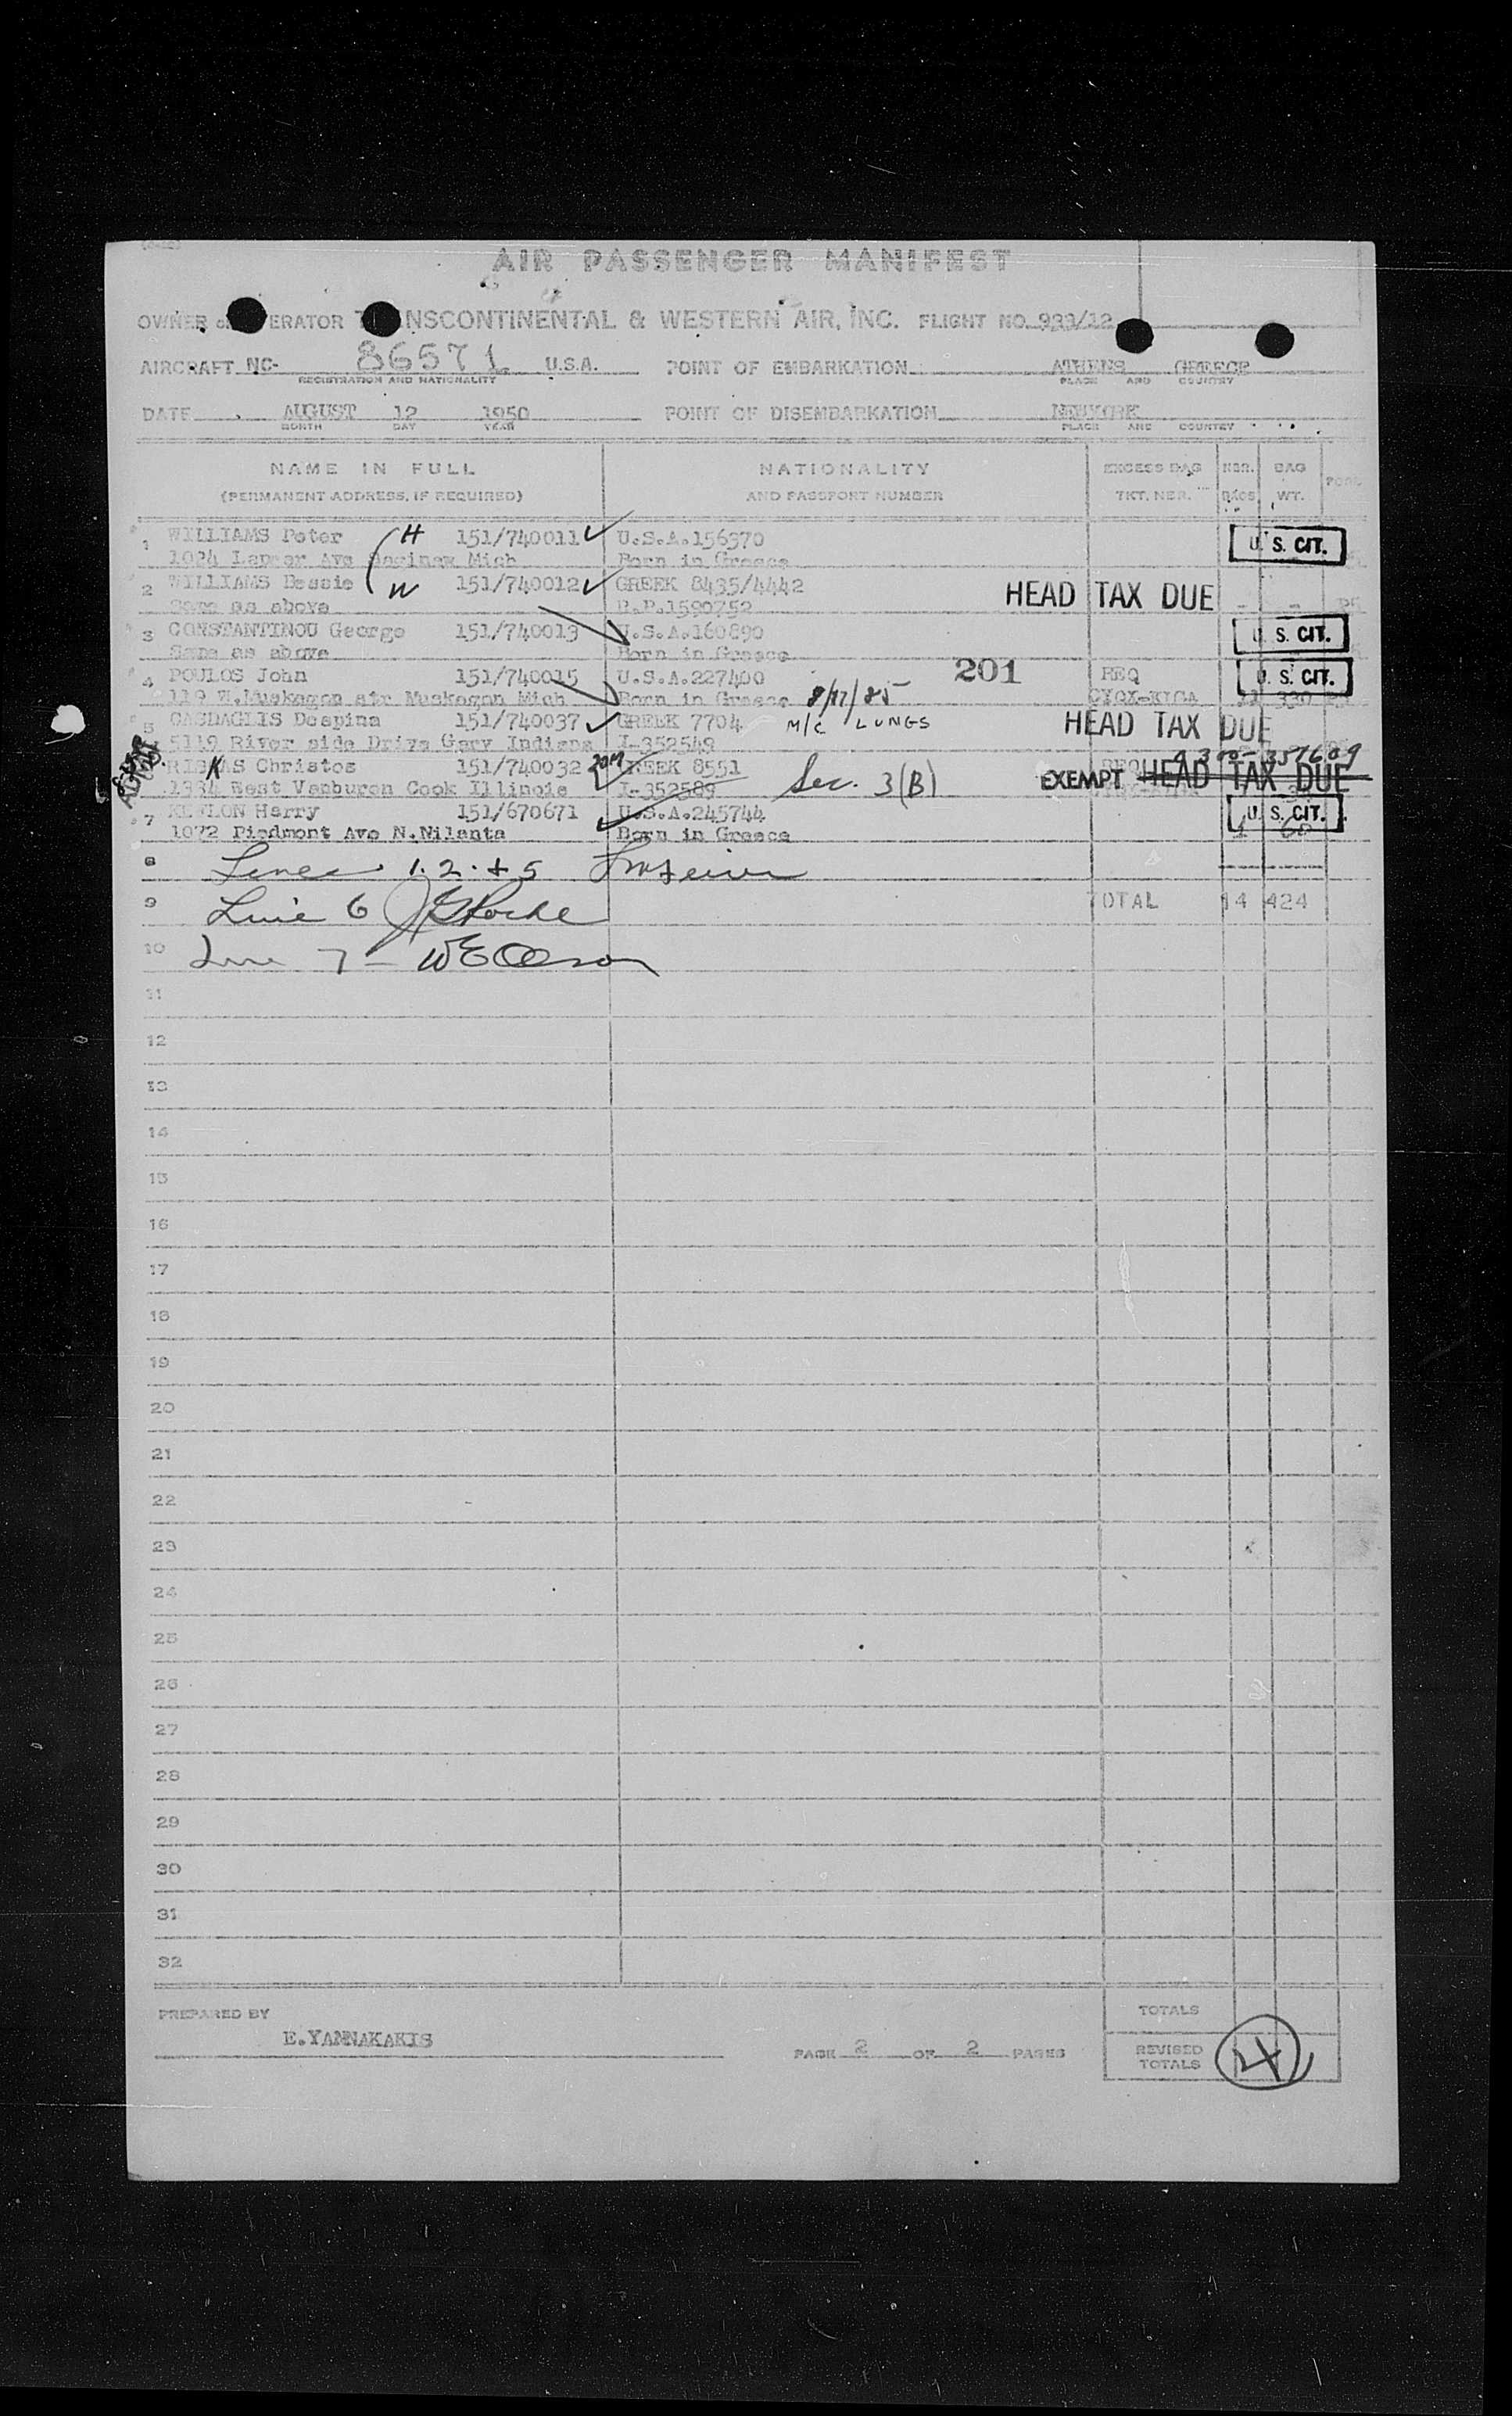 AIR PASSENGER MANIFEST
OWNER ERATOR NSCONTINENTAL & WESTERN AIR, INC. FLIGHT NO. 933/12
AIRCRAFT NC- 86571 U.S.A. POINT OF EMBARKATION ATHENS GREECE
REGISTRATION AND NATIONALITY PLACE AND COUNTRY
DATE AUGUST 12 1950 POINT OF DISEMBARKATION NEWYORK
MONTH DAY YEAR PLACE AND COUNTRY
NAME IN FULL NATIONALITY EXCESS BAG NBR. BAG
(PERMANENT ADDRESS, IF REQUIRED) AND PASSPORT NUMBER TKT. NBR. BAGS WT.
1 WILLIAMS Peter H 151/740011 U.S.A.156370 U. S. CIT.
1024 Ave Saginaw Mich Born in Greece
2 WILLIAMS Bessie W 151/740012 GREEK 8435/4442 HEAD TAX DUE
Same as above R.P.1590752
3 CONSTANTINOU George 151/740013 U.S.A.160890 U. S. CIT.
Same as above Born in Greece
4 POULOS John 151/740015 U.S.A.227400 201 REQ U. S. CIT.
119 W.Muskegon str Muskegon Mich Born in Greece 11 330
5 CASDAGLIS Despina 151/740037 GREEK 7704 M/C LUNGS HEAD TAX DUE
5119 River side Drive Gary Indiana I-352549
K Christos 151/740032 GREEK 8551 Sec. 3(B) EXEMPT HEAD TAX DUE
1334 West Vanburen Cook Illinois I-352589
7 Harry 151/670671 U.S.A.245744 U. S. CIT.
1072 Piedmont Ave N.Nilanta Born in Greece
8 Lines 1. 2. + 5
9 Line 6 TOTAL 14 424
10 Line 7 -
11
12
13
14
15
16
17
18
19
20
21
22
23
24
25
26
27
28
29
30
31
32
PREPARED BY TOTALS
E.YANNAKAKIS PAGE 2 OF 2 PAGES REVISED
TOTALS